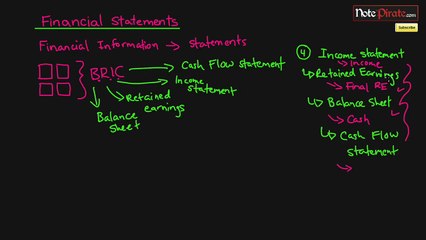 Financial Statements
NotePirate.com
Subscribe now
Financial Information → Statements
BRIC
Cash Flow statement
Income
statement
Retained
earnings
Balance
Sheet
④ Income statement
↳ Income
↳ Retained Earnings
↳ Final RE
↳ Balance Sheet
↳ Cash
↳ Cash Flow
statement